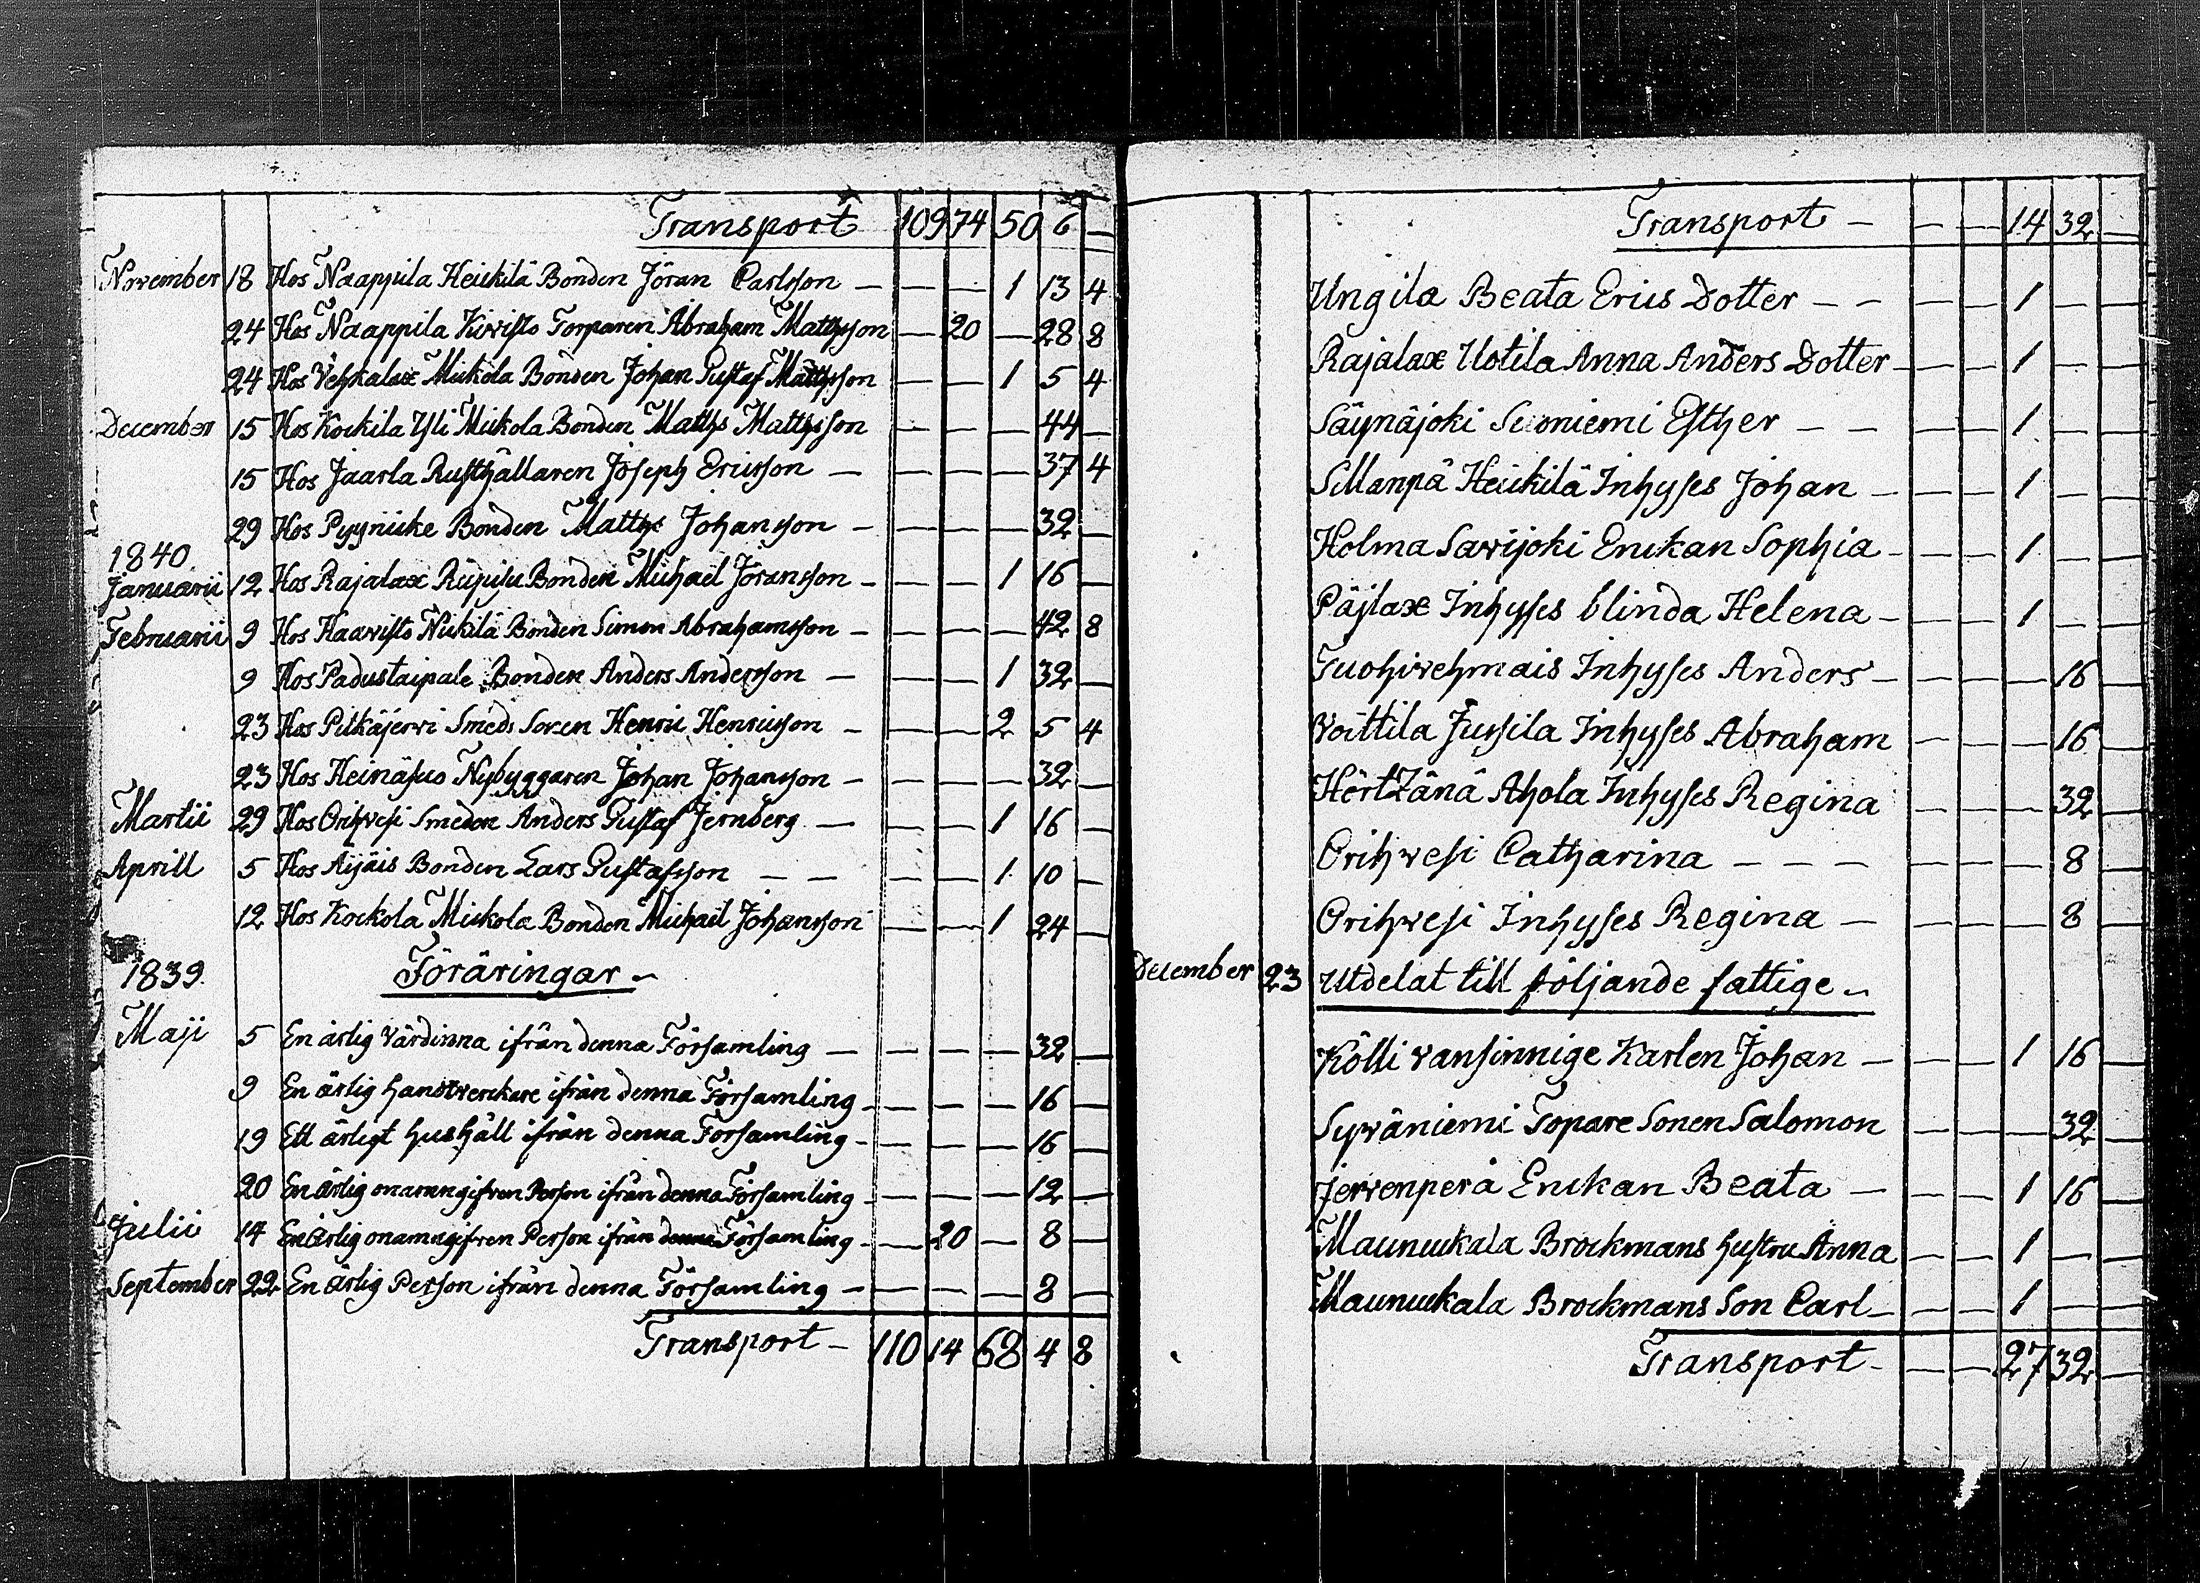 Transport 109 74 50 6 —
November 18 Hos Naappila Heickilä Bonden Jöran Carlsson — — — 1 13 4
24 Hos Naappila Kiwisto Torparen Abraham Mattsson — 20 — 28 8
24 Hos Vehkalax Mickola Bonden Johan Gustaf Mattsson — — 1 5 4
December 15 Hos Kockila Yli Mickola Bonden Matths Mattsson — — — 44 —
15 Hos Jaarla Rusthållaren Joseph Ericsson — — — — 37 4
29 Hos Pyynicke Bonden Matths Johansson — — — — 32 —
1840.
Januarii 12 Hos Rajalax Bonden Michael Jöransson — — — 1 16 —
Februarii 9 Hos Haavisto Nickilä Bonden Simon Abrahamsson — — — — 42 8
9 Hos Padustaipale Bonden Anders Andersson — — — 1 32 —
23 Hos Pitkäjerwi Smeds Sonen Henric Henricsson — — — 2 5 4
23 Hos Heinäsuo Nybyggaren Johan Johansson — — — — 32 —
Martii 29 Hos Orihvesi Smeden Anders Gustaf Jernberg — — — 1 16 —
Aprill 5 Hos Äijäis Bonden Lars Gustafsson — — — — 1 10 —
12 Hos Kockola Mickola Bonden Michaël Johansson — — 1 24 —
1839. Föräringar —
Maji 5 En ärlig värdinna ifrån denna Församling — — — — 32 —
9 En ärlig handtverckare ifrån denna Församling — — — 16 —
19 Ett ärligt hushåll ifrån denna Församling — — — — 16 —
20 En ärlig onamngifven Person ifrån denna Församling — — — 12 —
Julii 14 En ärlig onamngifven Person ifrån denna Församling — 20 — 8 —
September 22 En ärlig Person ifrån denna Församling — — — — 8 —
Transport — 110 14 68 4 8
Transport — — — 14 32 —
Ungila Beata Erics Dotter — — — — 1 — —
Rajalax Uotila Anna Anders Dotter — — — 1 — —
Säynäjoki Suoniemi Esther — — — — 1 — —
Sillanpä Heickilä Inhyses Johan — — — 1 — —
Holma Sawijoki Enckan Sophia — — — 1 — —
Päjlax Inhyses blinda Helena — — — 1 — —
Tuohivehmais Inhyses Anders — — — — 16 —
Voittila Jussila Inhyses Abraham — — — 16 —
Ahola Inhyses Regina — — — 32 —
Orihvesi Catharina — — — — — — 8 —
Orihvesi Inhyses Regina — — — — 8 —
December 23 Utdelat till följande fattige —
Kölli vansinnige Karlen Johan — — — 1 16 —
Syväniemi Topare Sonen Salomon — — — 32 —
Jerrenperä Enckan Beata — — — 1 16 —
Maunuckala Brockmans hustru Anna — — 1 — —
Maunuckala Brockmans Son Carl — — — 1 — —
Transport — — — 27 32 —